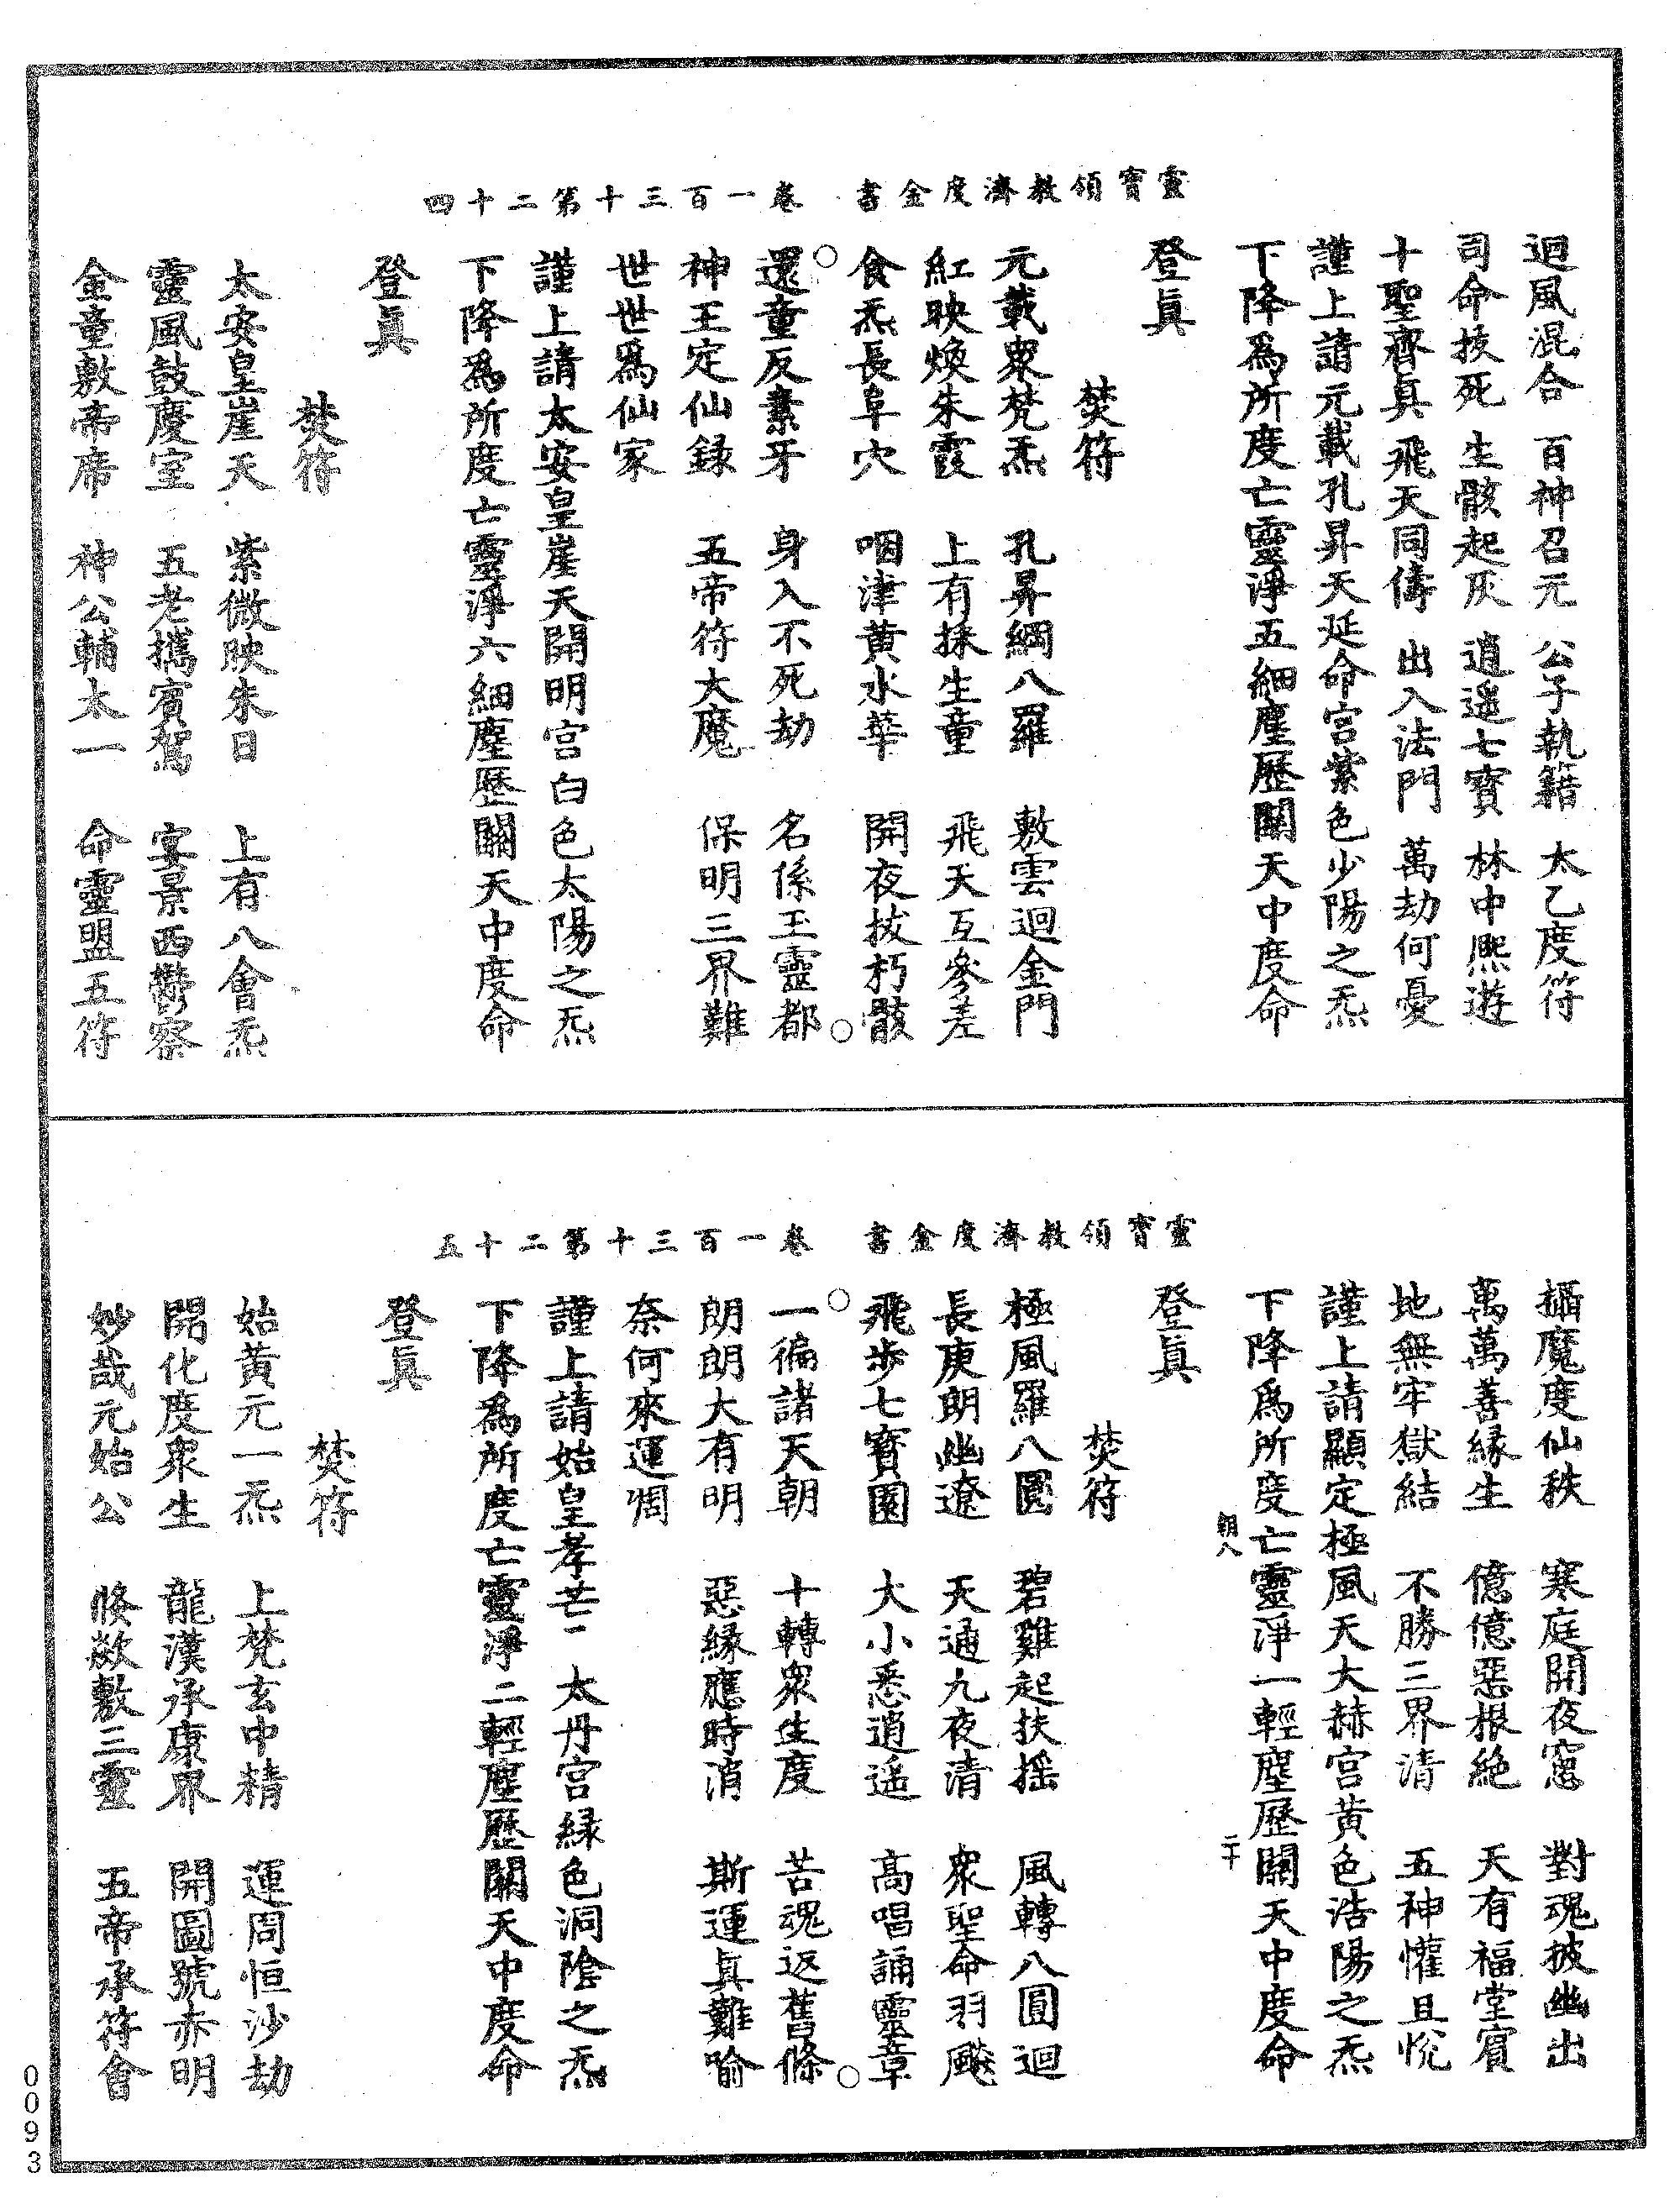 靈寶領教濟度金書　卷一百三十第二十四
迴風混合　百神召元　公子執籍　太乙度符
司命拔死　生骸起灰　逍遙七寶　林中熈遊
十聖齊眞　飛天同儔　出入法門　萬劫何憂
謹上請元載孔昇天延命宮紫色少陽之炁
下降爲所度亡靈淨五細塵歷關天中度命
登眞
焚符
元載衆梵炁　孔昇綱八羅　敷雲迴金門
紅映煥朱霞　上有採生童　飛天互參差
食炁長阜穴　咽津黃水華　開夜拔朽骸
還童反素牙　身入不死劫　名係玉靈都
神王定仙錄　五帝符大魔　保明三界難
世世爲仙家
謹上請太安皇崖天開明宮白色太陽之炁
下降爲所度亡靈淨六細塵歷關天中度命
登眞
焚符
太安皇崖天　紫微映朱日　上有八會炁
靈風鼓慶室　五老攜賓駕　宴景西鬱察
金童敷帝席　神公輔太一　命靈盟五符
靈寶領教濟度金書　卷一百三十第二十五
攝魔度仙秩　寒庭開夜窓　對魂披幽出
萬萬善緣生　億億惡根絶　天有福堂賓
地無牢獄結　不勝三界清　五神懽且悅
謹上請顯定極風天大赫宮黃色浩陽之炁
下降爲所度亡靈淨一輕塵歷關天中度命
朝八　二十
登眞
焚符
極風羅八圓　碧雞起扶摇　風轉八圓迴
長庚朗幽遼　天通九夜清　衆聖命羽飈
飛步七寶園　大小悉逍遥　高唱誦靈章
一徧諸天朝　十轉衆生度　苦魂返舊條
朗朗大有明　惡緣應時消　斯運眞難喻
奈何來運惆
謹上請始皇孝芒　太丹宮緑色洞陰之炁
下降爲所度亡靈淨二輕塵歷關天中度命
登眞
焚符
始黃元一炁　上梵玄中精　運周恒沙劫
開化度衆生　龍漢承康界　開圖號赤明
妙哉元始公　倏歘敷三靈　五帝承符會
0093